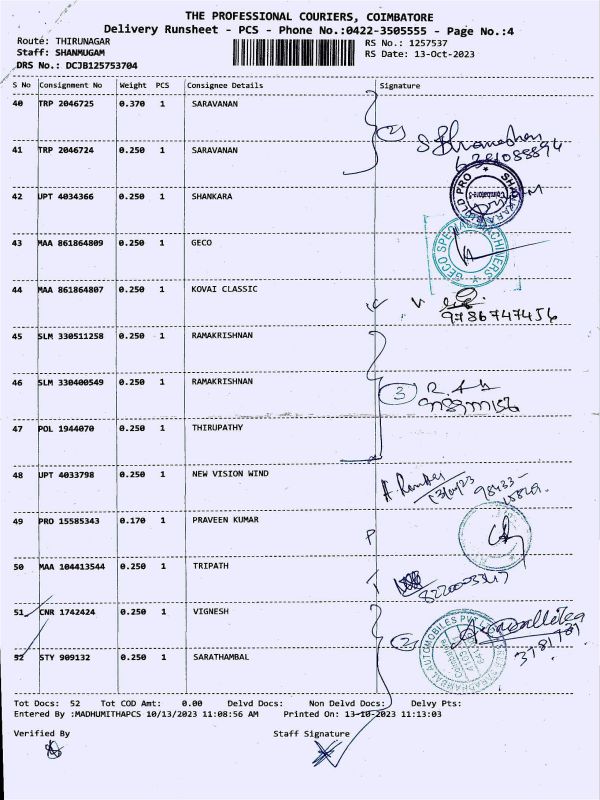 THE PROFESSIONAL COURIERS, COIMBATORE
Delivery Runsheet - PCS - Phone No.:0422-3505555 - Page No.:4
Route: THIRUNAGAR RS No.: 1257537
Staff: SHANMUGAM RS Date: 13-Oct-2023
DRS No.: DCJB125753704
S No Consignment No Weight PCS Consignee Details Signature
40 TRP 2046725 0.370 1 SARAVANAN
2
41 TRP 2046724 0.250 1 SARAVANAN
42 UPT 4034366 0.250 1 SHANKARA
43 MAA 861864809 0.250 1 GECO
GECO SPECIAL MACHINERS
44 MAA 861864807 0.250 1 KOVAI CLASSIC
9786747456
45 SLM 330511258 0.250 1 RAMAKRISHNAN
46 SLM 330400549 0.250 1 RAMAKRISHNAN
3
47 POL 1944070 0.250 1 THIRUPATHY
48 UPT 4033798 0.250 1 NEW VISION WIND
49 PRO 15585343 0.170 1 PRAVEEN KUMAR
50 MAA 104413544 0.250 1 TRIPATH
51 CNR 1742424 0.250 1 VIGNESH
2
52 STY 909132 0.250 1 SARATHAMBAL
Tot Docs: 52 Tot COD Amt: 0.00 Delvd Docs: Non Delvd Docs: Delvy Pts:
Entered By :MADHUMITHAPCS 10/13/2023 11:08:56 AM Printed On: 13-10-2023 11:13:03
Verified By Staff Signature